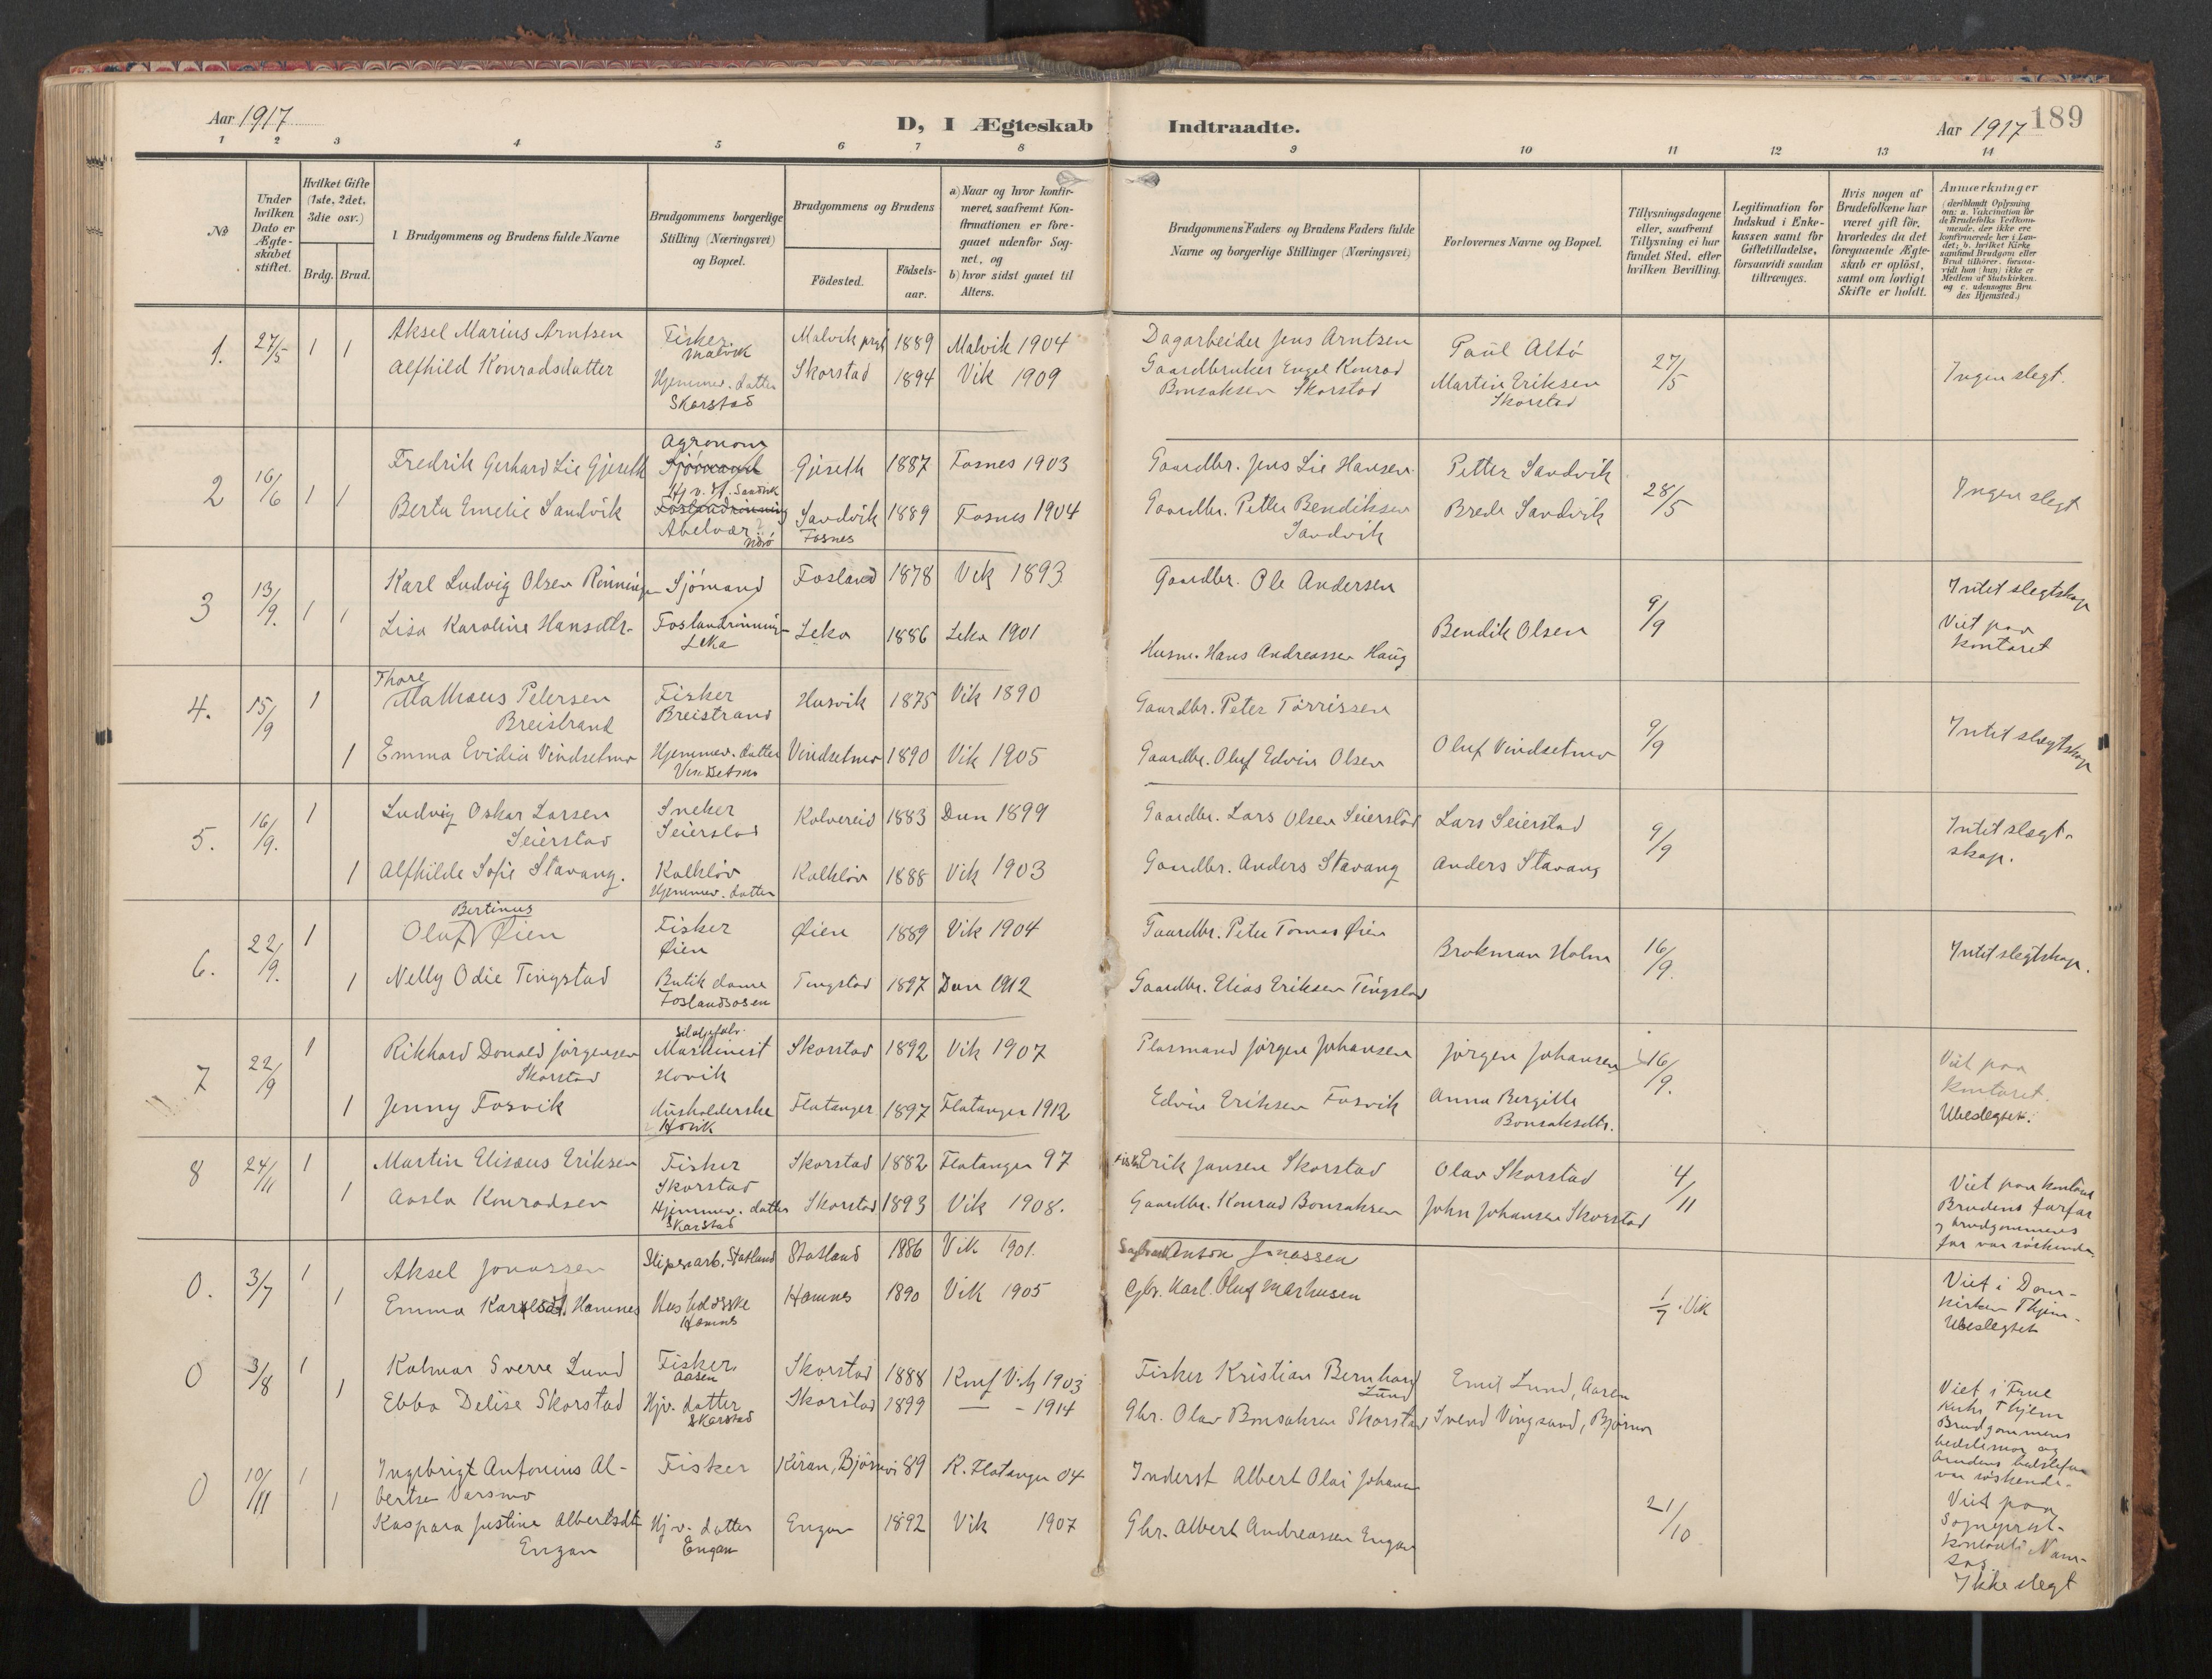 Aar 1917
D, I Ægteskab
Indtraadte.
Aar 1917
189
1 2 3 4 5 6 7 8 9 10 11 12 13 14
No
Under hvilken Dato er Ægte-skabet stiftet.
Hvilket Gifte (1ste, 2det, 3die osv.)
Brdg. Brud.
Brudgommens og Brudens fulde Navne
Brudgommens borgerlige Stilling (Næringsvei) og Bopæl.
Brudgommens og Brudens
Födested.
Födsels-aar.
a) Naar og hvor konfir-meret, saafremt Kon-firmationen er fore-gaaet udenför Sog-net, og
b) hvor sidst gaaet til Alters.
Brudgommens Faders og Brudens Faders fulde Navne og borgerlige Stillinger (Næringsvei)
Forlovernes Navne og Bopæl.
Tillysningsdagene eller, saafremt Tillysning ei har fundet Sted, efter hvilken Bevilling.
Legitimation for Indskud i Enke-kassen samt for Giftetilladelse, forsaavidt saadan tiltrænges.
Hvis nogen af Brudefolkene har været gift för, hvorledes da det foregaaende Ægte-skab er oplöst, samt om lovligt Skifte er holdt.
Anmærkninger (deriblandt Oplysning om: a. Vakcination for de Brudefolks Vedkom-mende, der ikke ere konfirmerede her i Lan-det; b. hvilket Kirke-samfund Brudgom eller Brud tilhörer, forsaa-vidt han (hun) ikke er Medlem af Statskirken. og c. udensogns Bru-des Hjemsted.)
1. 27/5 1 1 Aksel Marius Arntsen Fisker Malvik Malvik prgd 1889 Malvik 1904 Dagarbeider Jens Arntsen Paul Altö 27/5 Ingen slegt.
Alfhild Konradsdatter Hjemmev. datter Skorstad Skorstad 1894 Vik 1909 Gaardbruker Engel Konrad Bonsaksen Skorstad Martin Eriksen Skorstad
2 16/6 1 1 Fredrik Gerhard Lie Gjeseth Agronom Sjömand Gjeseth 1887 Fosnes 1903 Gaardbr. Jens Lie Hansen Petter Sandvik 28/5 Ingen slegt
Berta Emelie Sandvik Hjv. dt. Sandvik Foslandrönning Abelvær Nærö Sandvik Fosnes 1889 Fosnes 1904 Gaardbr. Petter Bendiksen Sandvik Brede Sandvik
3 13/9. 1 1 Karl Ludvig Olsen Rönningen Sjömand Fosland 1878 Vik 1893 Gaardbr. Ole Andersen 9/9 Intet slegtskap
Lisa Karoline Hansdtr. Foslandrönning Leka Leka 1886 Leka 1901 Husm. Hans Andreassen Haug Bendik Olsen Viet paa kontoret
4. 15/9 1 Thore Mathæus Petersen Breistrand Fisker Breistrand Husvik 1875 Vik 1890 Gaardbr. Peter Törrissen 9/9 Intet slegtskap
1 Emma Evidia Vindsetmo Hjemmev. datter Vindsetmo Vindsetmo 1890 Vik 1905 Gaardbr. Oluf Edvin Olsen Oluf Vindsetmo
5. 16/9. 1 Ludvig Oskar Larsen Seierstad Sneker Seierstad Kolvereid 1883 Dun 1899 Gaardbr. Lars Olsen Seierstad Lars Seierstad 9/9 Intet slegt-skap.
1 Alfhilde Sofie Stavang. Kalklöv Hjemmev. datter Kalklöv 1888 Vik 1903 Gaardbr. Anders Stavang Anders Stavang
6. 22/9. 1 Oluf Bertinus Øien Fisker Øien Øien 1889 Vik 1904 Gaardbr. Peter Tomas Øien Brokman Holm 16/9. Intet slegtskap.
1 Nelly Odie Tingstad Butikdame Foslandsosen Tingstad 1897 Dun 1912 Gaardbr. Elias Eriksen Tingstad
7 22/9 1 Rikhard Donald Jörgensen Skorstad Maskinist Hovik Skorstad 1892 Vik 1907 Plasmand Jörgen Johansen Jörgen Johansen 16/9. Viet paa kontoret. Ubeslegtet.
1 Jenny Fosvik Husholderske Hovik Flatanger 1897 Flatanger 1912 Edvin Eriksen Fosvik Anna Bergitte Bonsaksdtr.
8 24/11 1 Martin Elisæus Eriksen Fisker Skorstad Skorstad 1882 Flatanger 97 Fisker Erik Jansen Skorstad Olav Skorstad 4/11 Viet paa kontoret
1 Aasla Konradsen Hjemmev. datter Skorstad Skorstad 1893 Vik 1908. Gaardbr. Konrad Bonsaksen John Johansen Skorstad Brudens farfar og brudgommens far var söskende
0. 3/7 1 Aksel Jonassen Sliperarb. Statland Statland 1886 Vik 1901. Anton Jonassen 1/7 i Vik Viet i Dom-kirken Thjem. Ubeslegtet
1 Emma Karlsdt. Hamnes Husholdrske Hamnes Hamnes 1890 Vik 1905 Gbr. Karl Oluf Markusen
0 3/8 1 Kalmar Sverre Lund Fisker Aasen Skorstad 1888 Konf Vik 1903 Fisker Kristian Bernhard Lund Emil Lund, Aasen Viet i Frue Kirke Thjem
1 Ebba Delise Skorstad Hjv. datter Skorstad Skorstad 1899 — - 1914 Gbr. Olav Bonsaksen Skorstad Svend Vingsand, Björnör Brudgommens bedstemor og brudens bedstefar var söskende.
0 10/11 1 Ingebrigt Antonius Al-bertsen Varsmo Fisker Kiran, Björnör 89 K. Flatanger 04 Inderst Albert Olai Johansen 21/10 Viet paa Sogneprest-kontoret i Nam-sos
1 Kaspara Justine Albertsdtr Engan Hjv. datter Engan Engan 1892 Vik 1907 Gbr. Albert Andreassen Engan Ikke slegt